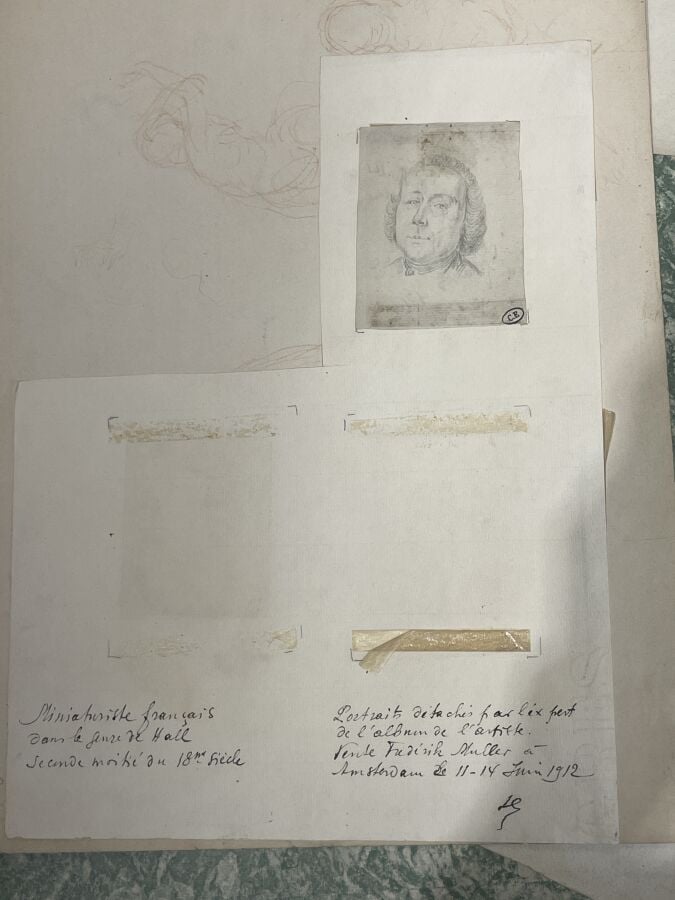 C.B
Miniaturiste français
dans le genre de Hall
Seconde moitié du 18me Siècle
Portraits détachés par l'éxpert
de l'album de l'artiste.
Vente Frédérik Muller à
Amsterdam le 11-14 Juin 1912